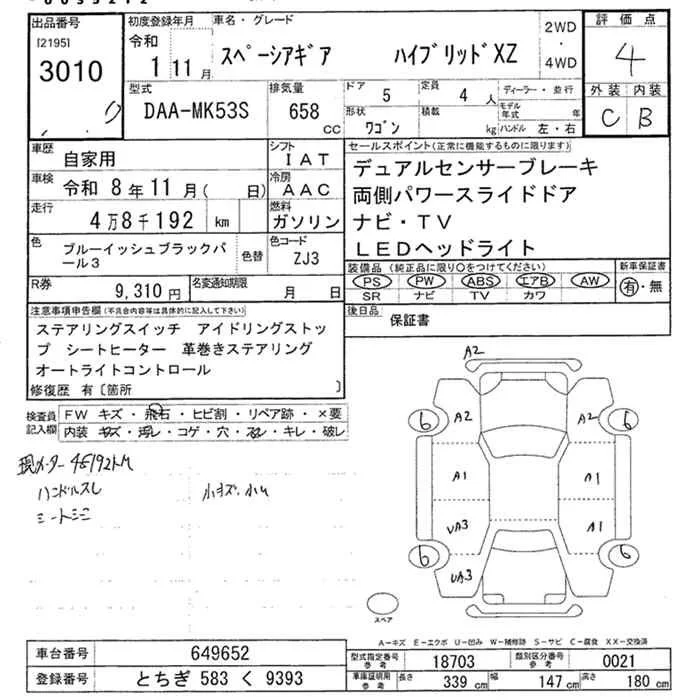 出品番号
[2195]
3010
初度登録年月
令和
1 11月
車名・グレード
スペーシアギア ハイブリッドXZ
2WD
・
4WD
評価点
4
外装 内装
C B
型式
DAA-MK53S
排気量
658 cc
ドア 5
定員 4 人
形状 ワゴン
積載 kg
ディーラー・並行
モデル年式 年
ハンドル 左・右
車歴 自家用
シフト IAT
車検 令和 8年11月( 日)
冷房 AAC
走行 4万8千192 km
燃料 ガソリン
色 ブルーイッシュブラックパール3
色替
色コード ZJ3
R券 9,310円
名変通知期限 月 日
セールスポイント(正常に機能するものに限ります)
デュアルセンサーブレーキ
両側パワースライドドア
ナビ・TV
LEDヘッドライト
装備品(純正品に限り○をつけてください)
PS PW ABS エアB AW
SR ナビ TV カワ
新車保証書
有・無
後日品 保証書
注意事項申告欄(不具合内容等は具体的に記入して下さい)
ステアリングスイッチ アイドリングストッ
プ シートヒーター 革巻きステアリング
オートライトコントロール
修復歴 有〔箇所 〕
検査員
記入欄
FW キズ・飛石・ヒビ割・リペア跡・×要
内装・キズ・汚レ・コゲ・穴・スレ・キレ・破レ
現メーター 48192km
ハンドルスレ 小キズ、小凹
シートシミ
A2
6 A2 A2 6
A1 A1
UA3 A1
6 UA3 6
スペア
A-キズ E-エクボ U-凹み W-補修跡 S-サビ C-腐食 XX-交換済
車台番号 649652
登録番号 とちぎ 583 く 9393
型式指定番号 参考 18703
類別区分番号 参考 0021
車庫証明用 参考
長さ 339 cm
幅 147 cm
高さ 180 cm